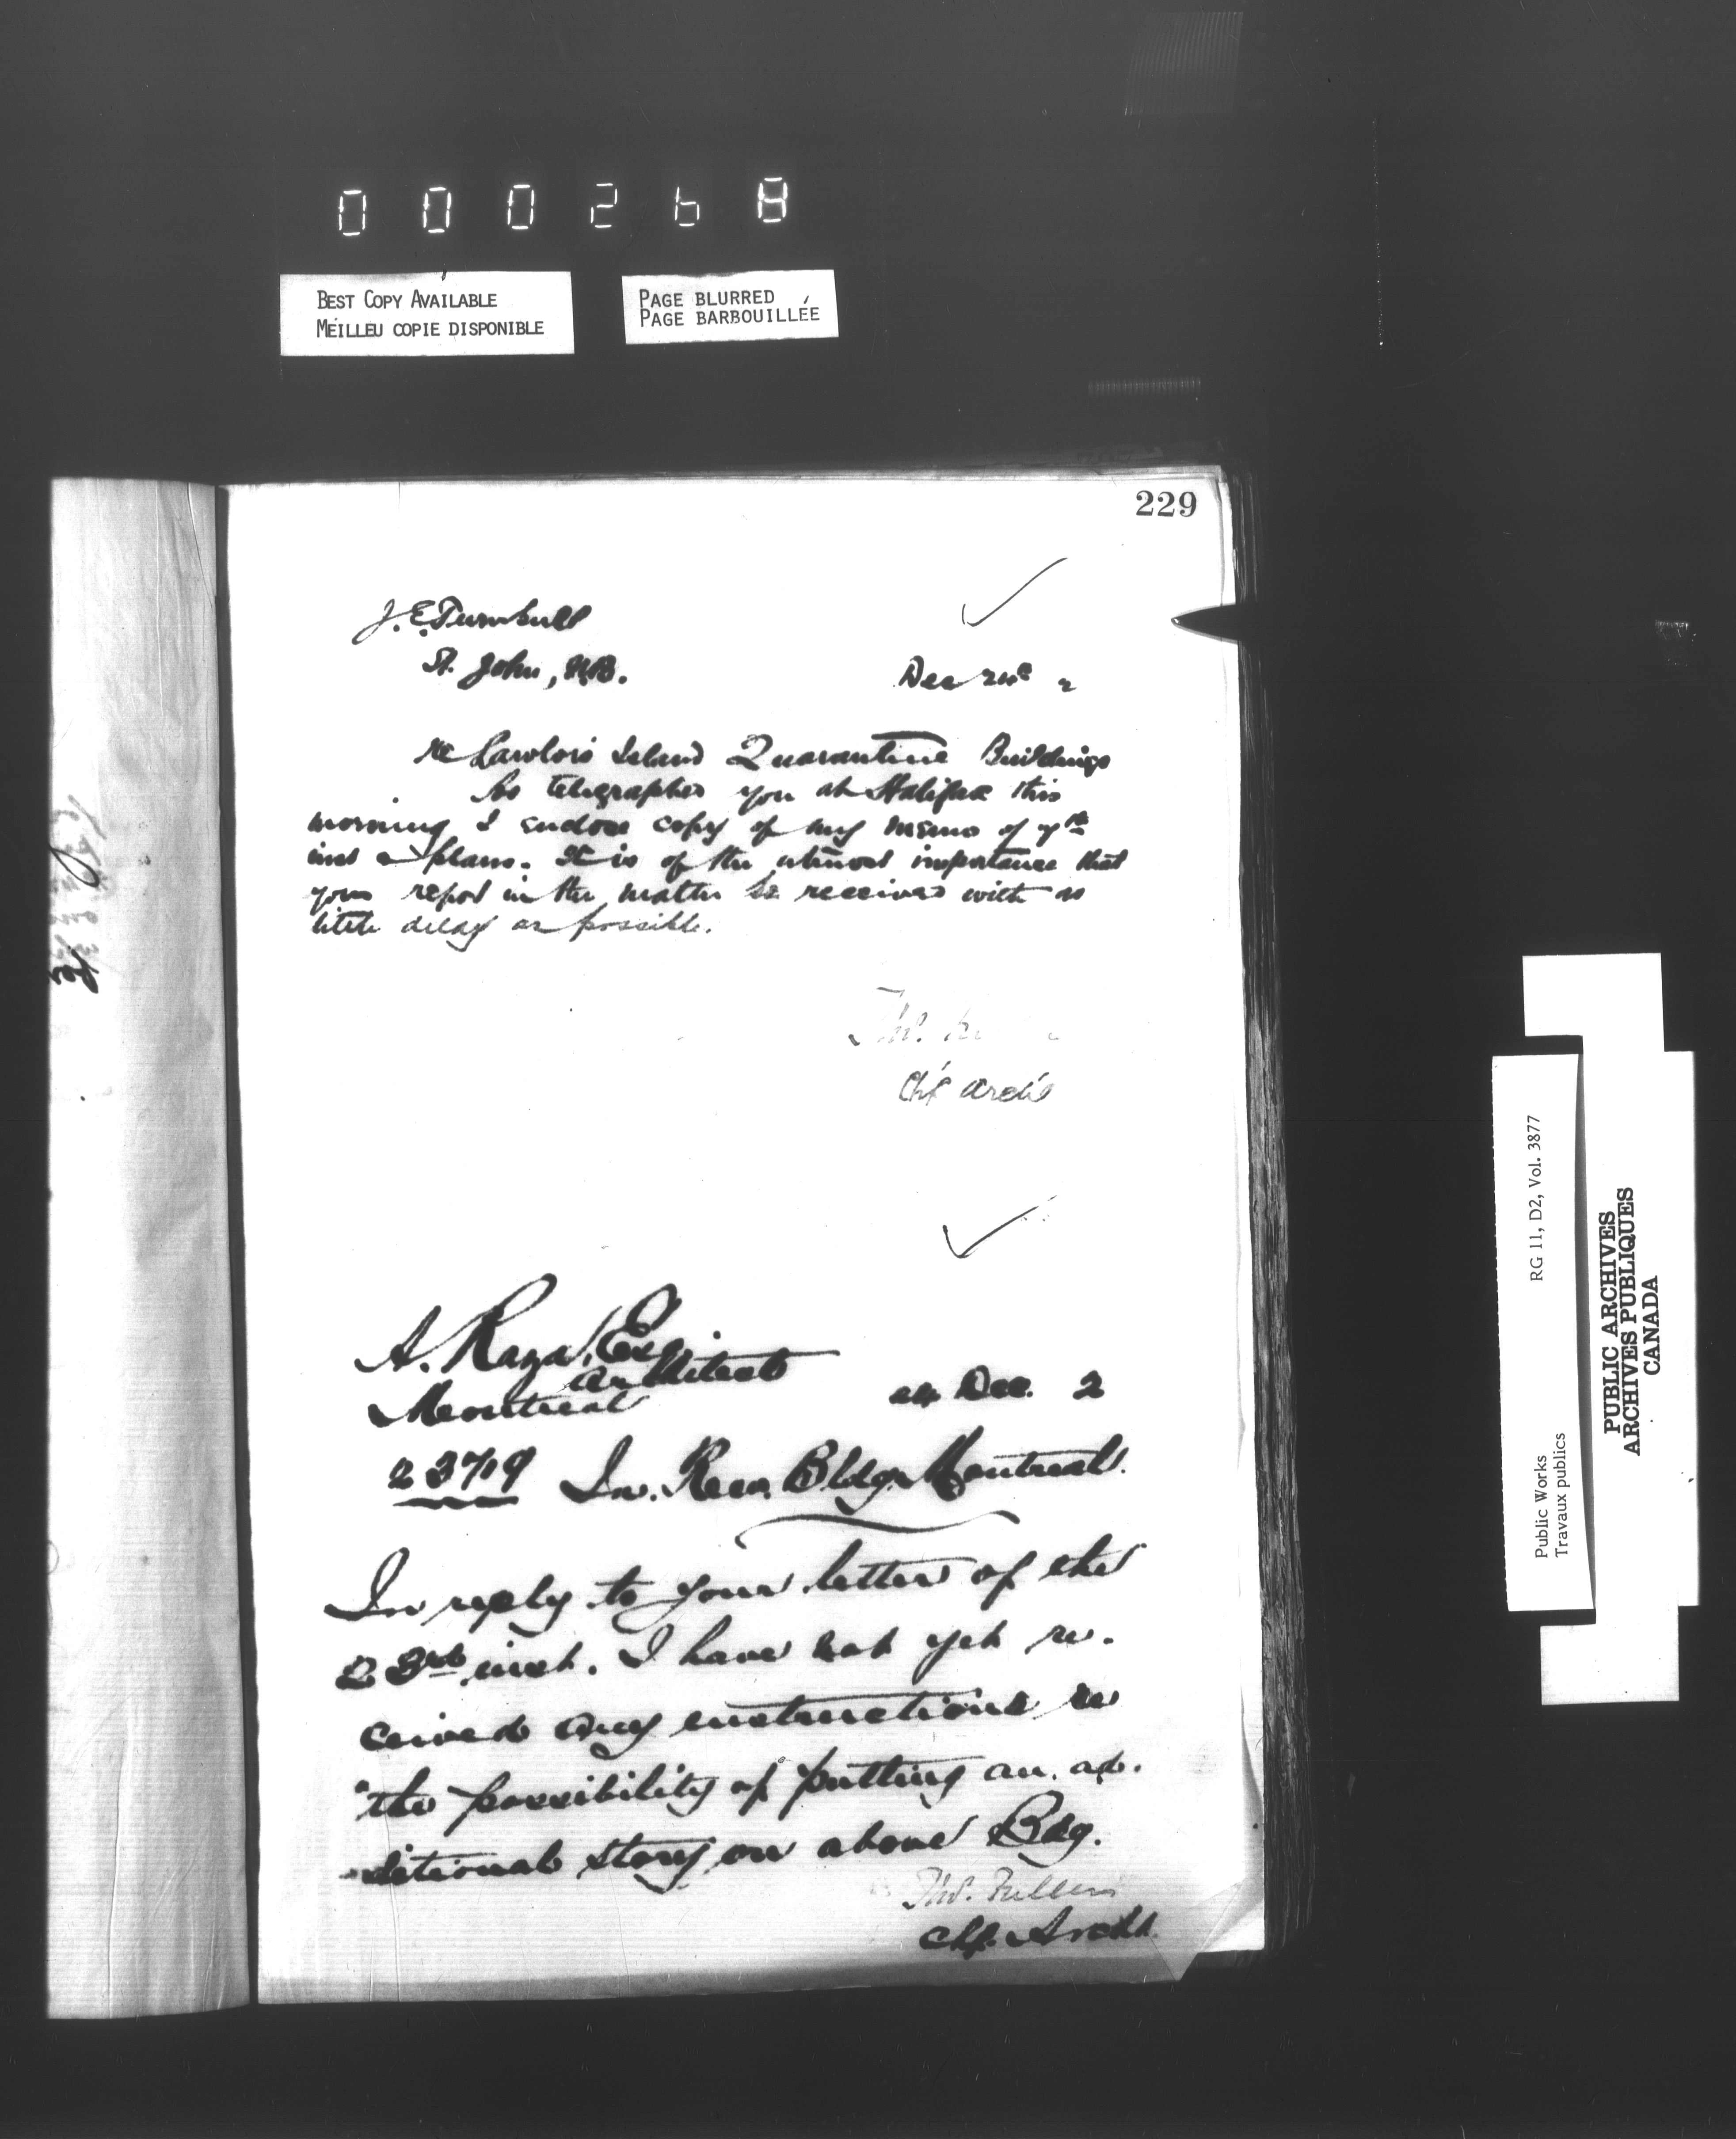 000268
BEST COPY AVAILABLE
MEILLEU COPIE DISPONIBLE
PAGE BLURRED
PAGE BARBOUILLÉE
229
J. E. Turnbull
St. John, N.B.
Dec 24th 2
re Lawlor's Island Quarantine Buildings
As telegraphed you at Halifax this
morning I enclose copy of my memo of 7th
inst & plans. It is of the utmost importance that
your report in the matter be received with as
little delay as possible.
Thos.
Chf Archt
A. Raza, Esq.
Architect
Montreal
24 Dec. 2
23719 In. Rev. Bldg. Montreal.
In reply to your letter of the
23rd inst. I have not yet re-
ceived any instructions re
the possibility of putting an ad-
ditional story on above Bdg.
Thos. Fuller
Chf. Archt.
Public Works RG 11, D2, Vol. 3877
Travaux publics
PUBLIC ARCHIVES
ARCHIVES PUBLIQUES
CANADA